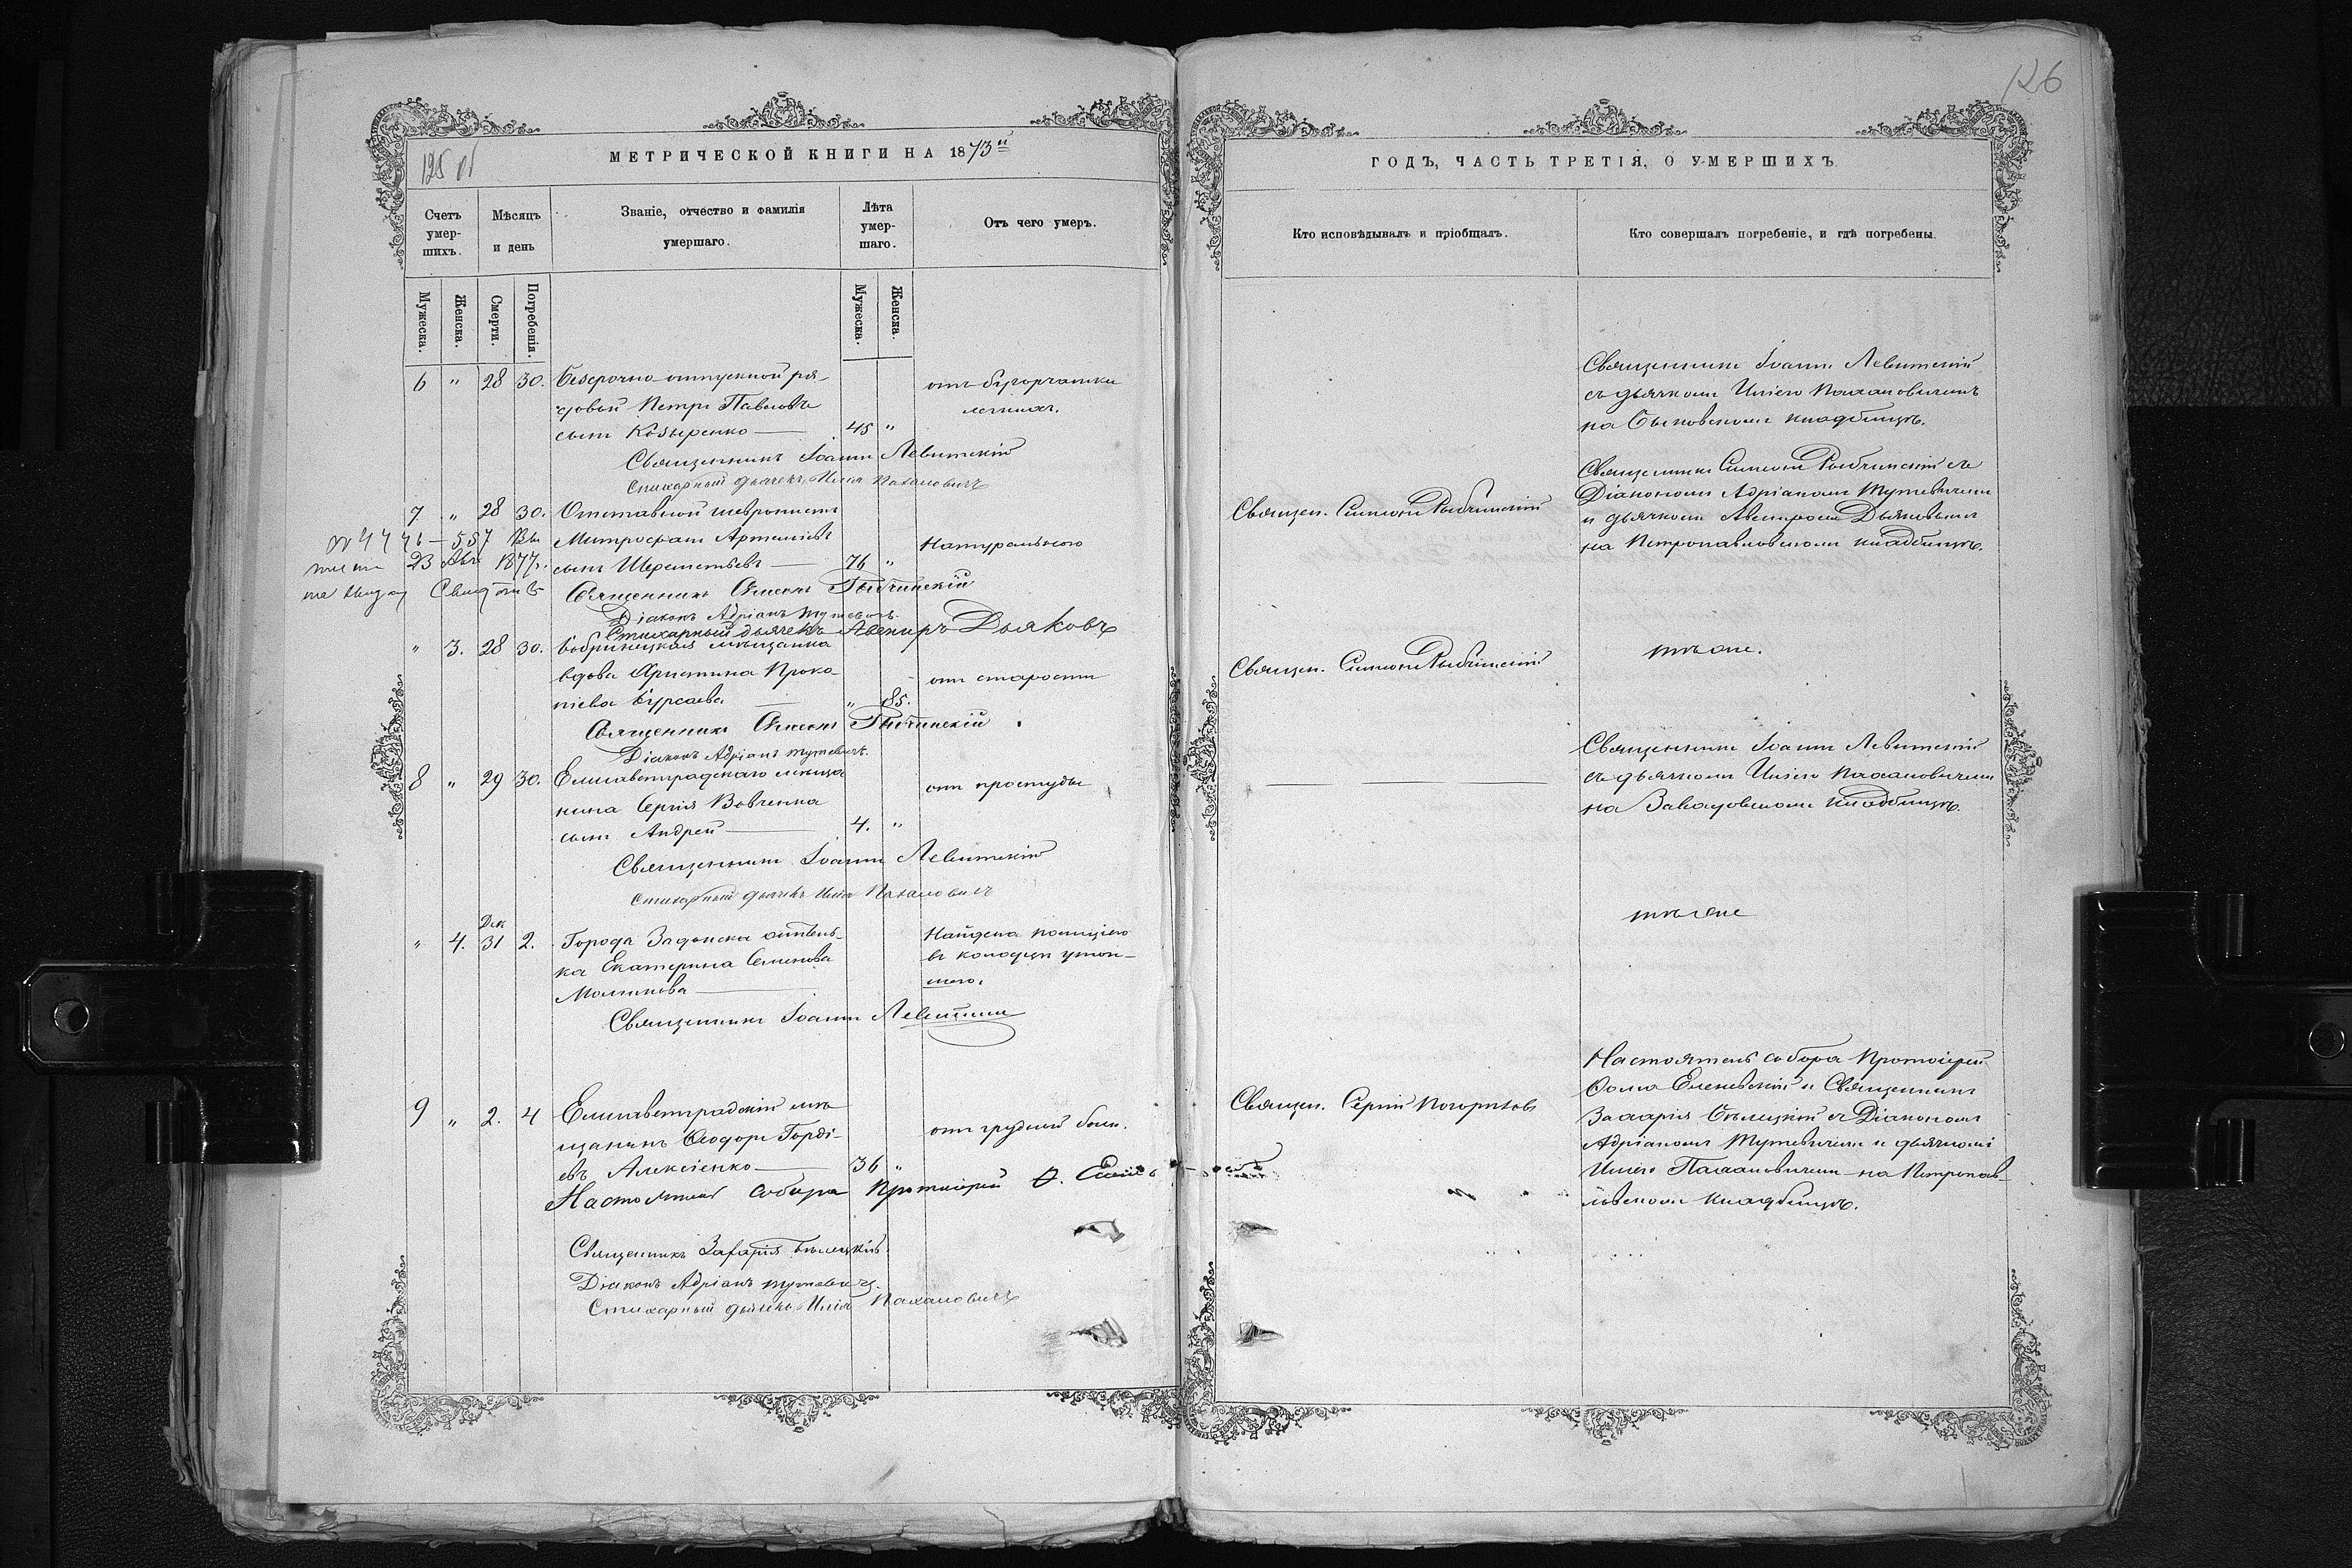 125 об
МЕТРИЧЕСКОЙ КНИГИ НА 1873й
Счетъ умершихъ.
Мѣсяцъ и день
Званіе, отчество и фамилія умершаго.
Лѣта умершаго.
Отъ чего умеръ.
Мужеска.
Женска.
Смерти.
Погребенія.
Мужеска.
Женска.
6 " 28 30. Безсрочно-отпускной ря-
довой Петръ Павловъ
сынъ Козыренко — 45 "
отъ бугорчатки
легкихъ.
Священникъ Іоаннъ Левитскій
Стихарный дьячекъ Илія Пахаловичъ
7 " 28 30. Отставной
Митрофанъ Артеміевъ
сынъ Шереметьевъ — 76 "
Натуральною
557
23 Авг 1877.
Священникъ Симеонъ Рыбчинскій
Діаконъ Адріанъ Тутевичъ.
Стихарный дьячекъ Авениръ Дьяковъ
" 3. 28 30. Бобринецкая мѣщанка
вдова Христина Проко-
піева Бурсаева — " 85.
отъ старости
Священникъ Симеонъ Рыбчинскій
Діаконъ Адріанъ Тутевичъ.
8 " 29 30. Елисаветградскаго мѣща
нина Сергія Вовченка
сынъ Андрей — 4. "
отъ простуды
Священникъ Іоаннъ Левитскій
Стихарный дьячекъ Илія Пахаловичъ
Дек
" 4. 31 2. Города Задонска
ка Екатерина Семенова
Малинова —
Найдена полиціею
въ колодцѣ утоп-
шею.
Священникъ Іоаннъ Левитскій
9 " 2. 4 Елисаветградскій мѣ
щанинъ Ѳеодоръ Горді-
евъ Алексіенко — 36 "
отъ грудной боли.
Настоятель собора Протоіерей Ѳ.
Священникъ Захарія Бѣлецкій
Діаконъ Адріанъ Тутевичъ.
Стихарный дьячекъ Илія Пахаловичъ
126
ГОДЪ, ЧАСТЬ ТРЕТІЯ, О УМЕРШИХЪ
Кто исповѣдывалъ и пріобщалъ.
Кто совершалъ погребеніе, и гдѣ погребены.
Священникъ Іоаннъ Левитскій
съ дьячкомъ Иліею Пахаловичемъ
на Быковскомъ кладбищѣ.
Священ. Симеонъ Рыбчинскій
Священникъ Симеонъ Рыбчинскій съ
Діакономъ Адріаномъ Тутевичемъ
и дьячкомъ Авениромъ Дьяковымъ
на Петропавловскомъ кладбищѣ.
Священ. Симеонъ Рыбчинскій
тѣ же.
Священникъ Іоаннъ Левитскій
съ дьячкомъ Иліею Пахаловичемъ
на Завадовскомъ кладбищѣ.
тѣ же
Священ. Сергій Погорѣловъ
Настоятель собора Протоіерей
Ѳома Еленевскій и Священникъ
Захарія Бѣлецкій съ Діакономъ
Адріаномъ Тутевичемъ и дьячкомъ
Иліею Пахаловичемъ на Петропав-
ловскомъ кладбищѣ.